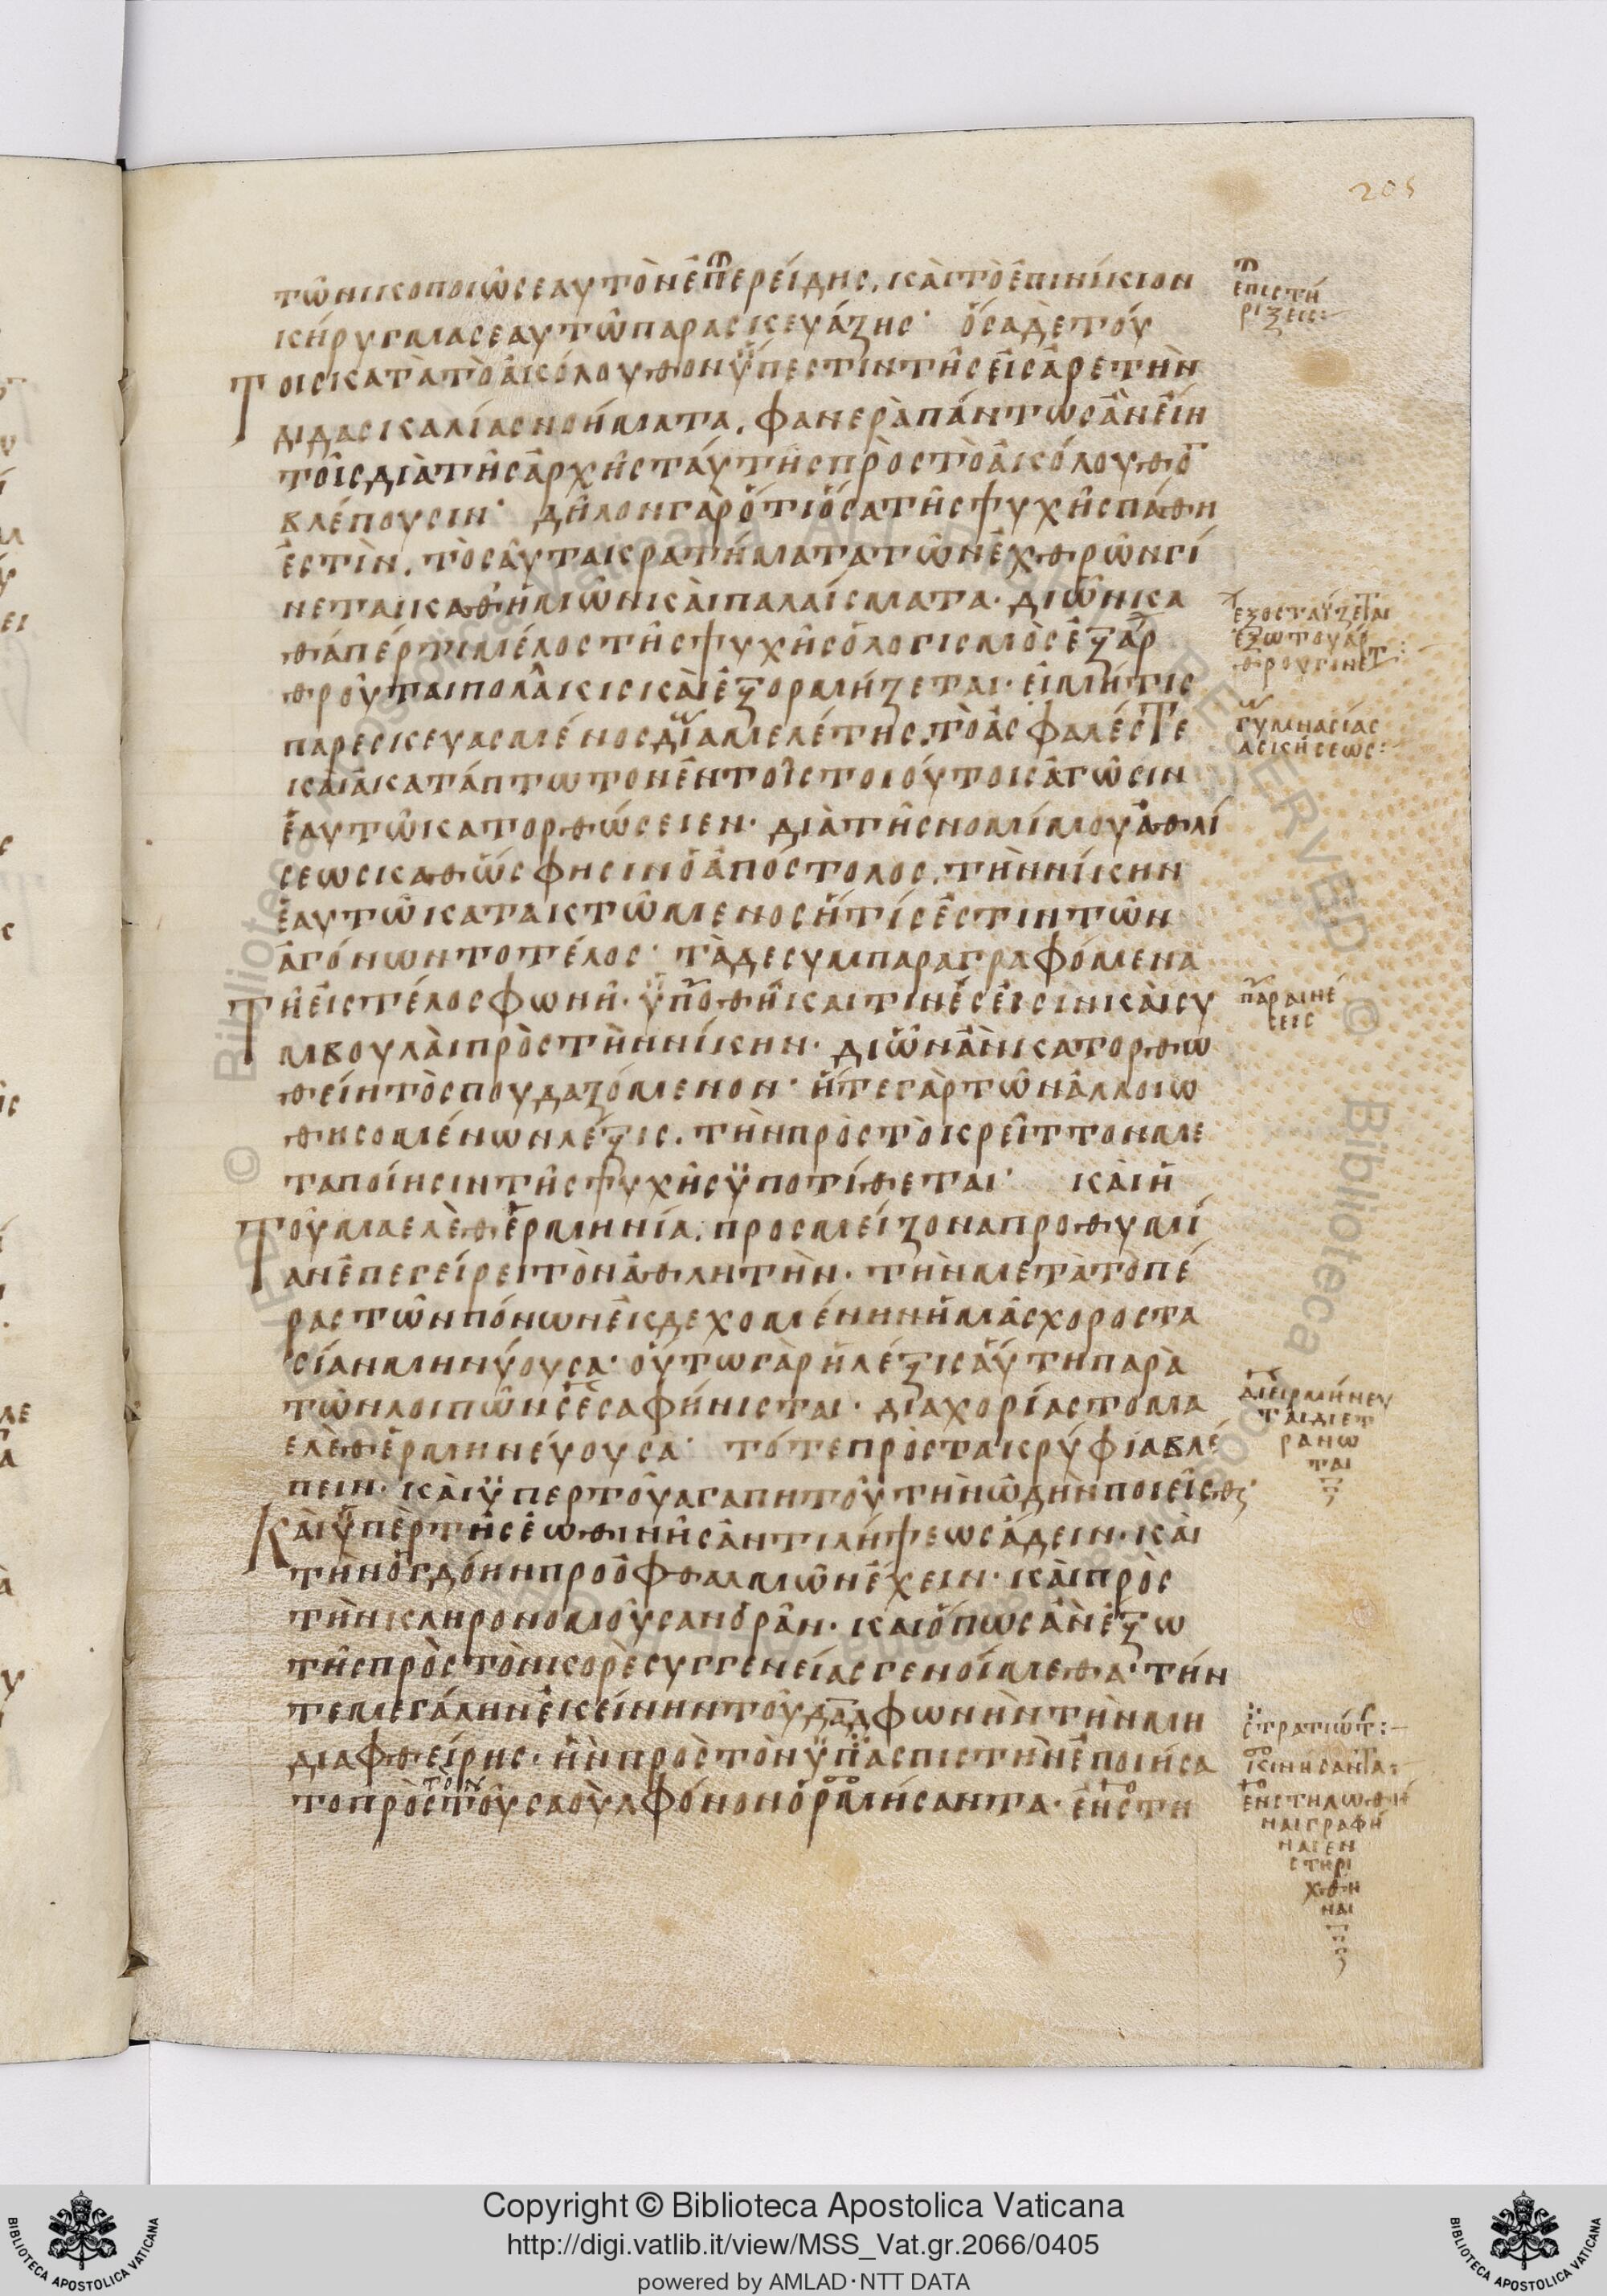 205
τῶνικοποιῶσεαυτὸνἐπερείδης. κὰιτὸἐπινίκιον
κήρυγμασεαυτῶπαρασκευάζης· ὅσαδετού
Τοισκατὰτὸἀκόλουθονὕπεστιντῆσεἰσἀρετὴν
διδασκαλίασνοήματα. φανερὰπάντωσἂνεἴη
τοῖσδιὰτῆσἀρχῆσταύτησπρὸστὸἀκόλουθο
βλέπουσιν· δῆλονγὰρὅτιὅσατῆσψυχῆσπάθη
ἐστὶν. τὸσαῦτακρατήματατῶνἐχθρῶνγί
νεταικαθἡμῶνκὰιπαλαίσματα· διὧνκα
θάπέρτιμέλοστῆσψυχῆσὁλογισμὸσἐξαρ
θροῦταιπολάκισκὰιἐξορμήζεται· εἰμήτισ
παρεσκευασμένοσδιαμελέτης. τὸἀσφαλέστε
καιἀκατάπτωτονἐντοῖστοιούτοισἀγῶσιν
ἑαυτῶκατορθώσειεν· διὰτῆσνομίμουἀθλί
σεωσκαθὥσφησινὁἀπόστολος. τὴννίκην
ἑαυτῶκατακτώμενοσἥτίσἐστιντῶν
ἀγόνωντοτέλος· τὰδεσυμπαραγραφόμενα
Τῆεἰστέλοσφωνῆ· ὑποθῆκαιτινέσεἰσὶνκὰισυ
μβουλὰιπρὸστὴννίκην· διὧνἂνκατορθω
θείητὸσπουδαζόμενον· ἥτεγὰρτῶνἀλλοιω
θησομένωνλέξις. τὴνπρὸστὸκρεῖττονμε
ταποίησιντῆσψυχῆσὑποτίθεται· κὰιἡ
Τοῦμαελὲθἑρμηνία. προσμείζοναπροθυμί
ανἐπεγείρειτὸνἀθλητὴν· τὴνμετὰτὸπέ
ραστῶνπόνωνἐκδεχομένηνἡμᾶσχοροστα
σίανμηνύουσα· οὕτωγὰρἡλέξισαὕτηπαρὰ
τῶνλοιπῶνσεσαφήνισται· διαχορίαστομα
ελὲθἑρμηνεύουσα· τότεπρὸστακρύφιαβλέ
πειν· κὰιὑπερτοῦαγαπητοῦτὴνὠδὴνποιεῖσθ
Κὰιὑπὲρτῆσἑωθινῆσἀντιλήψεωσἄδειν· κὰι
τὴνὀγδόηνπροὀφθαλμῶνἔχειν· κὰιπρὸς
τὴνκληρονομοῦσανὁρᾶν· καιὅπωσἂνἔξω
τῆσπρὸστὸνκορὲσυγγενείασγενοίμεθα· τήν
τεμεγάληνἐκείνηντοῦδαδφωνὴντὴνμη
διαφθείρης· ἣνπρὸστὸνὑπασπιστὴνἐποιήσα
τοπρὸστὸνοῦσαοὺλφόνονὁρμήσαντα· ἐνστη
ἐπιστή
ριξεις:
εξοσταΐζεται
ἔξωτουάρ
θρουγίνετ:
γυμνασίας
ασκήσεως:
παραινέ
σεις
διειρμήνευ
ταιδιετ
ρανω
ται
στρατιώτ:
κινήσαντα:
ἐνστηλωθῆ
ναιγραφῆ
ναιεν
στηρι
χθῆ
ναι
Copyright © Biblioteca Apostolica Vaticana
http://digi.vatlib.it/view/MSS_Vat.gr.2066/0405
powered by AMLAD·NTT DATA
BIBLIOTECA APOSTOLICA VATICANA
BIBLIOTECA APOSTOLICA VATICANA